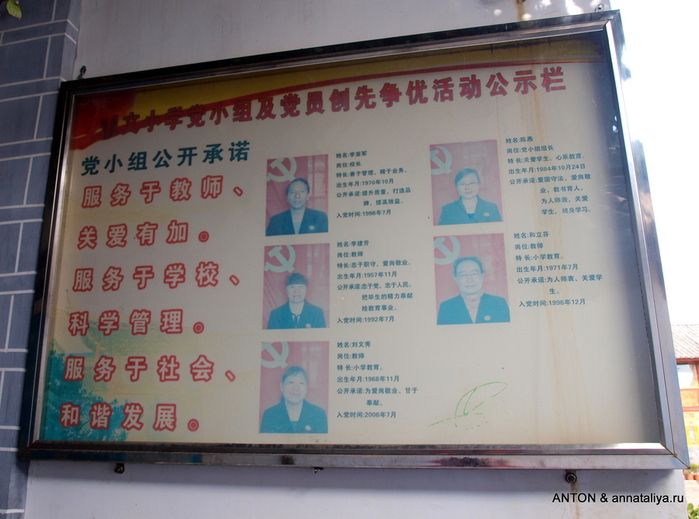 小学党小组及党员创先争优活动公示栏
党小组公开承诺
服务于教师、
关爱有加。
服务于学校、
科学管理。
服务于社会、
和谐发展。
姓名:李嵩军
岗位:校长
特长:善于管理、精于业务。
出生年月:1970年10月
公开承诺:提升质量、打造品
牌、提高效益。
入党时间:1996年7月
姓名:李建芳
岗位:教师
特长:忠于职守、爱岗敬业。
出生年月:1957年11月
公开承诺:忠于党、忠于人民、
把毕生的精力奉献
给教育事业。
入党时间:1992年7月
姓名:刘文秀
岗位:教师
特长:小学教育。
出生年月:1968年11月
公开承诺:为爱岗敬业、甘于
奉献。
入党时间:2006年7月
岗位:党小组组长
特长:关爱学生、心系教育。
出生年月:1984年10月24日
公开承诺:爱国守法、爱岗敬
业、教书育人、
为人师表、关爱
学生、终身学习。
姓名:和立芬
岗位:教师
特长:小学教育。
出生年月:1971年7月
公开承诺:为人师表、关爱学
生。
入党时间:1996年12月
ANTON & annataliya.ru